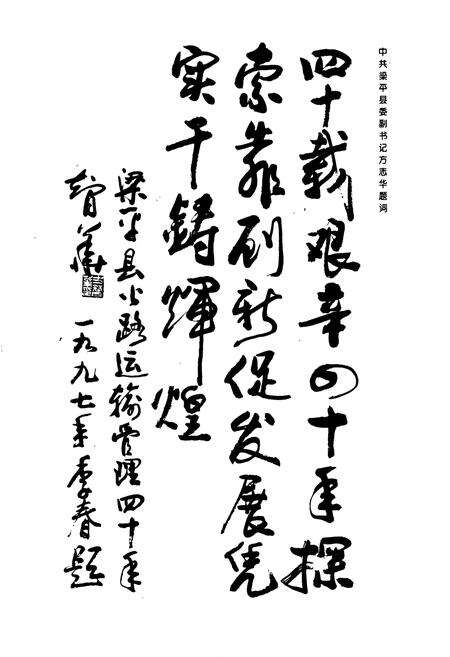 中共梁平县委副书记方志华题词
四十载艰辛四十年探
索靠创新促发展凭
实干铸辉煌
梁平县公路运输管理四十年
智华
一九九七年季春题